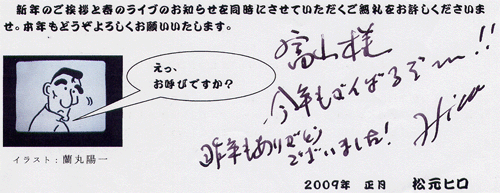 新年のご挨拶と春のライブのお知らせを同時にさせていただくご無礼をお許しくださいま
せ。本年もどうぞよろしくお願いいたします。
えっ、
お呼びですか？
富山様
今年もがんばるぞ〜!!
昨年もありがとう
ございました！
Hiro
イラスト：蘭丸陽一
2009年 正月 松元ヒロ